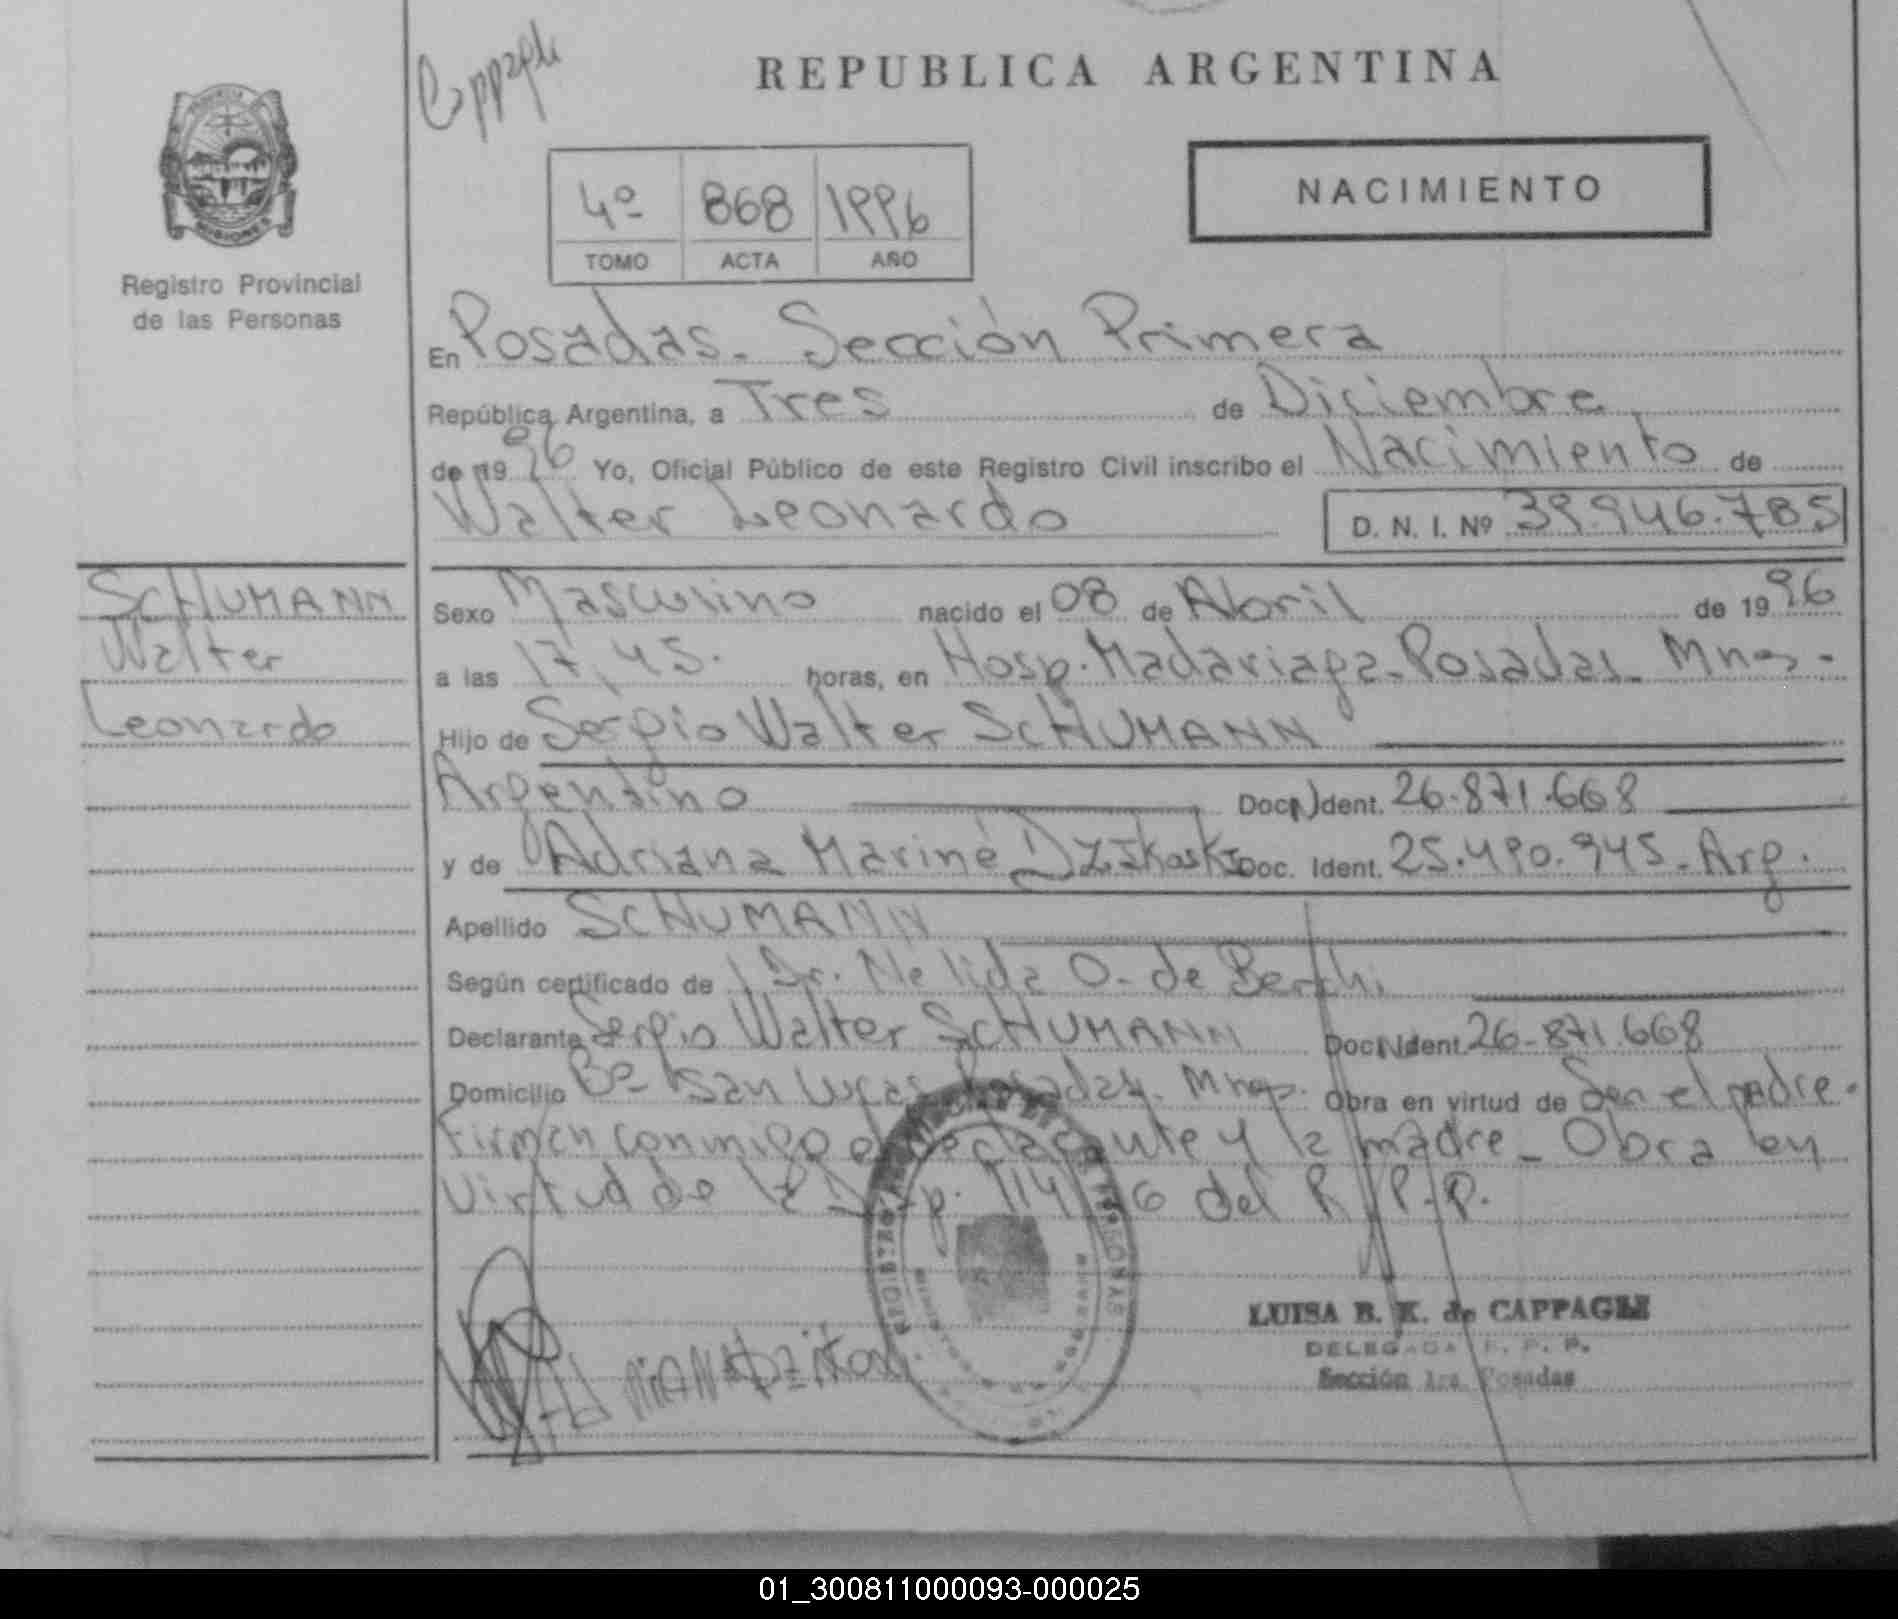 Cappagli
REPUBLICA ARGENTINA
PROVINCIA
MISIONES
4º 868 1996
TOMO ACTA AÑO
NACIMIENTO
Registro Provincial
de las Personas
En Posadas. Sección Primera
República Argentina, a Tres de Diciembre
de 1996 Yo, Oficial Público de este Registro Civil inscribo el Nacimiento de
Walter Leonardo D. N. I. Nº 39.946.785
SCHUMANN
Walter
Leonardo
Sexo Masculino nacido el 08 de Abril de 1996
a las 17,45. horas, en Hosp. Madariaga-Posadas-Mnes.
Hijo de Sergio Walter SCHUMANN
Argentino Doc. Ident. 26.871.668
y de Adriana Mariné Doc. Ident. 25.490.945-Arg.
Apellido SCHUMANN
Según certificado de Dr. Nelida O. de
Declarante Sergio Walter SCHUMANN Doc. Ident. 26-871.668
Domicilio Bº San Lucas Posadas. Mnes. Obra en virtud de Ser el padre.
Firman conmigo el declarante y la madre_ Obra en
virtud de la del R.P.P.
LUISA B. K. de CAPPAGLI
DELEGADA R. P. P.
Sección 1ra Posadas
01_300811000093-000025